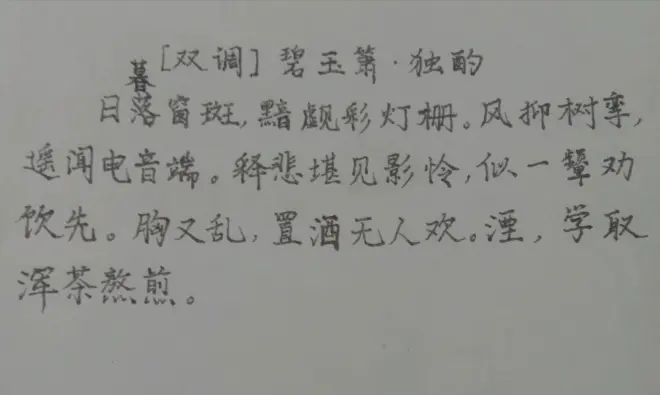 [双调]碧玉箫·独酌
暮
日落窗斑,黯觑彩灯栅。风抑树挛,
遥闻电音端。释悲堪见影怜,似一颦劝
饮先。胸又乱,置酒无人欢。湮,学取
浑茶熬煎。